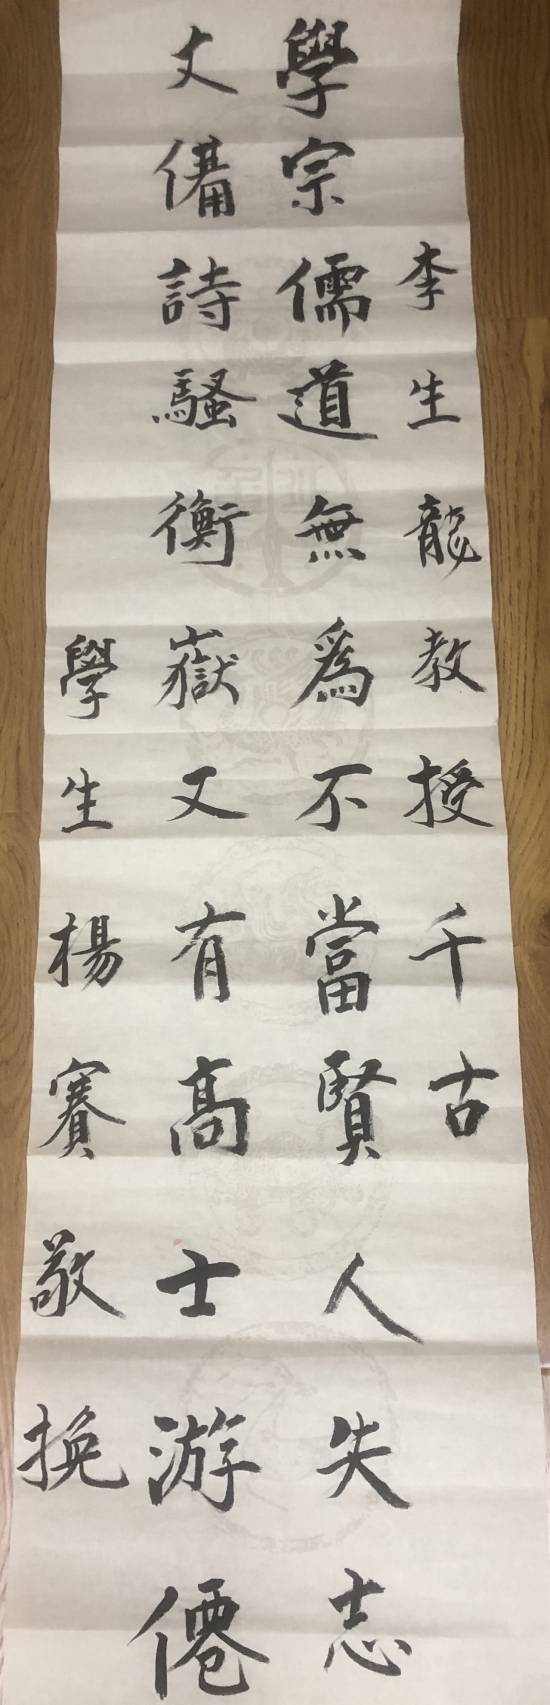 李生龍教授千古
學宗儒道無為不當賢人失志
文備詩騷衡嶽又有高士游僊
學生楊賽敬挽